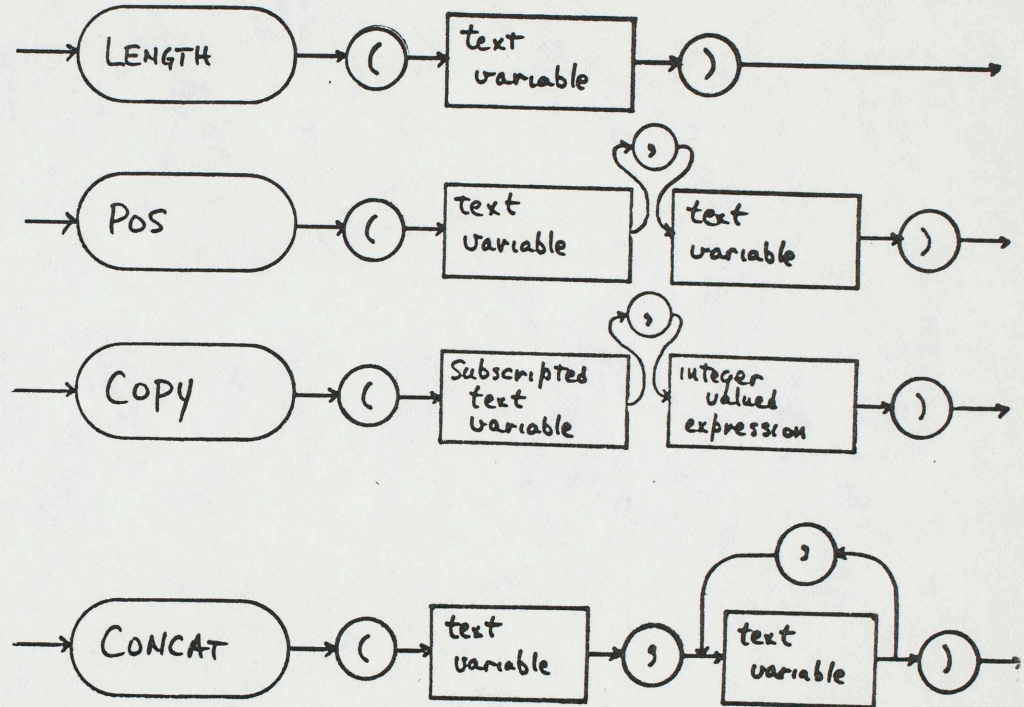 LENGTH ( text variable )
POS ( text variable , text variable )
COPY ( Subscripted text variable , integer valued expression )
CONCAT ( text variable , text variable , )